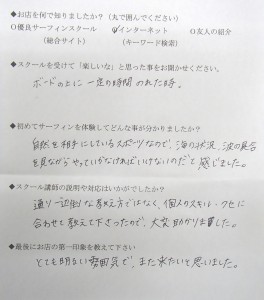 ◆お店を何で知りましたか？（丸で囲んでください）
○優良サーフィンスクール ○インターネット ○友人の紹介
（総合サイト） （キーワード検索）
◆スクールを受けて「楽しいな」と思った事をお聞かせください。
ボードの上に一定の時間のれた時。
◆初めてサーフィンを体験してどんな事が分かりましたか？
自然を相手にしているスポーツなので、海の状況、波の具合
を見ながらやっていかなければいけないのだと感じました。
◆スクール講師の説明や対応はいかがでしたか？
通り一辺倒な教え方ではなく、個人のスキル・クセに
合わせて教えて下さったので、大変助かりました。
◆最後にお店の第一印象を教えて下さい
とても明るい雰囲気で、また来たいと思いました。